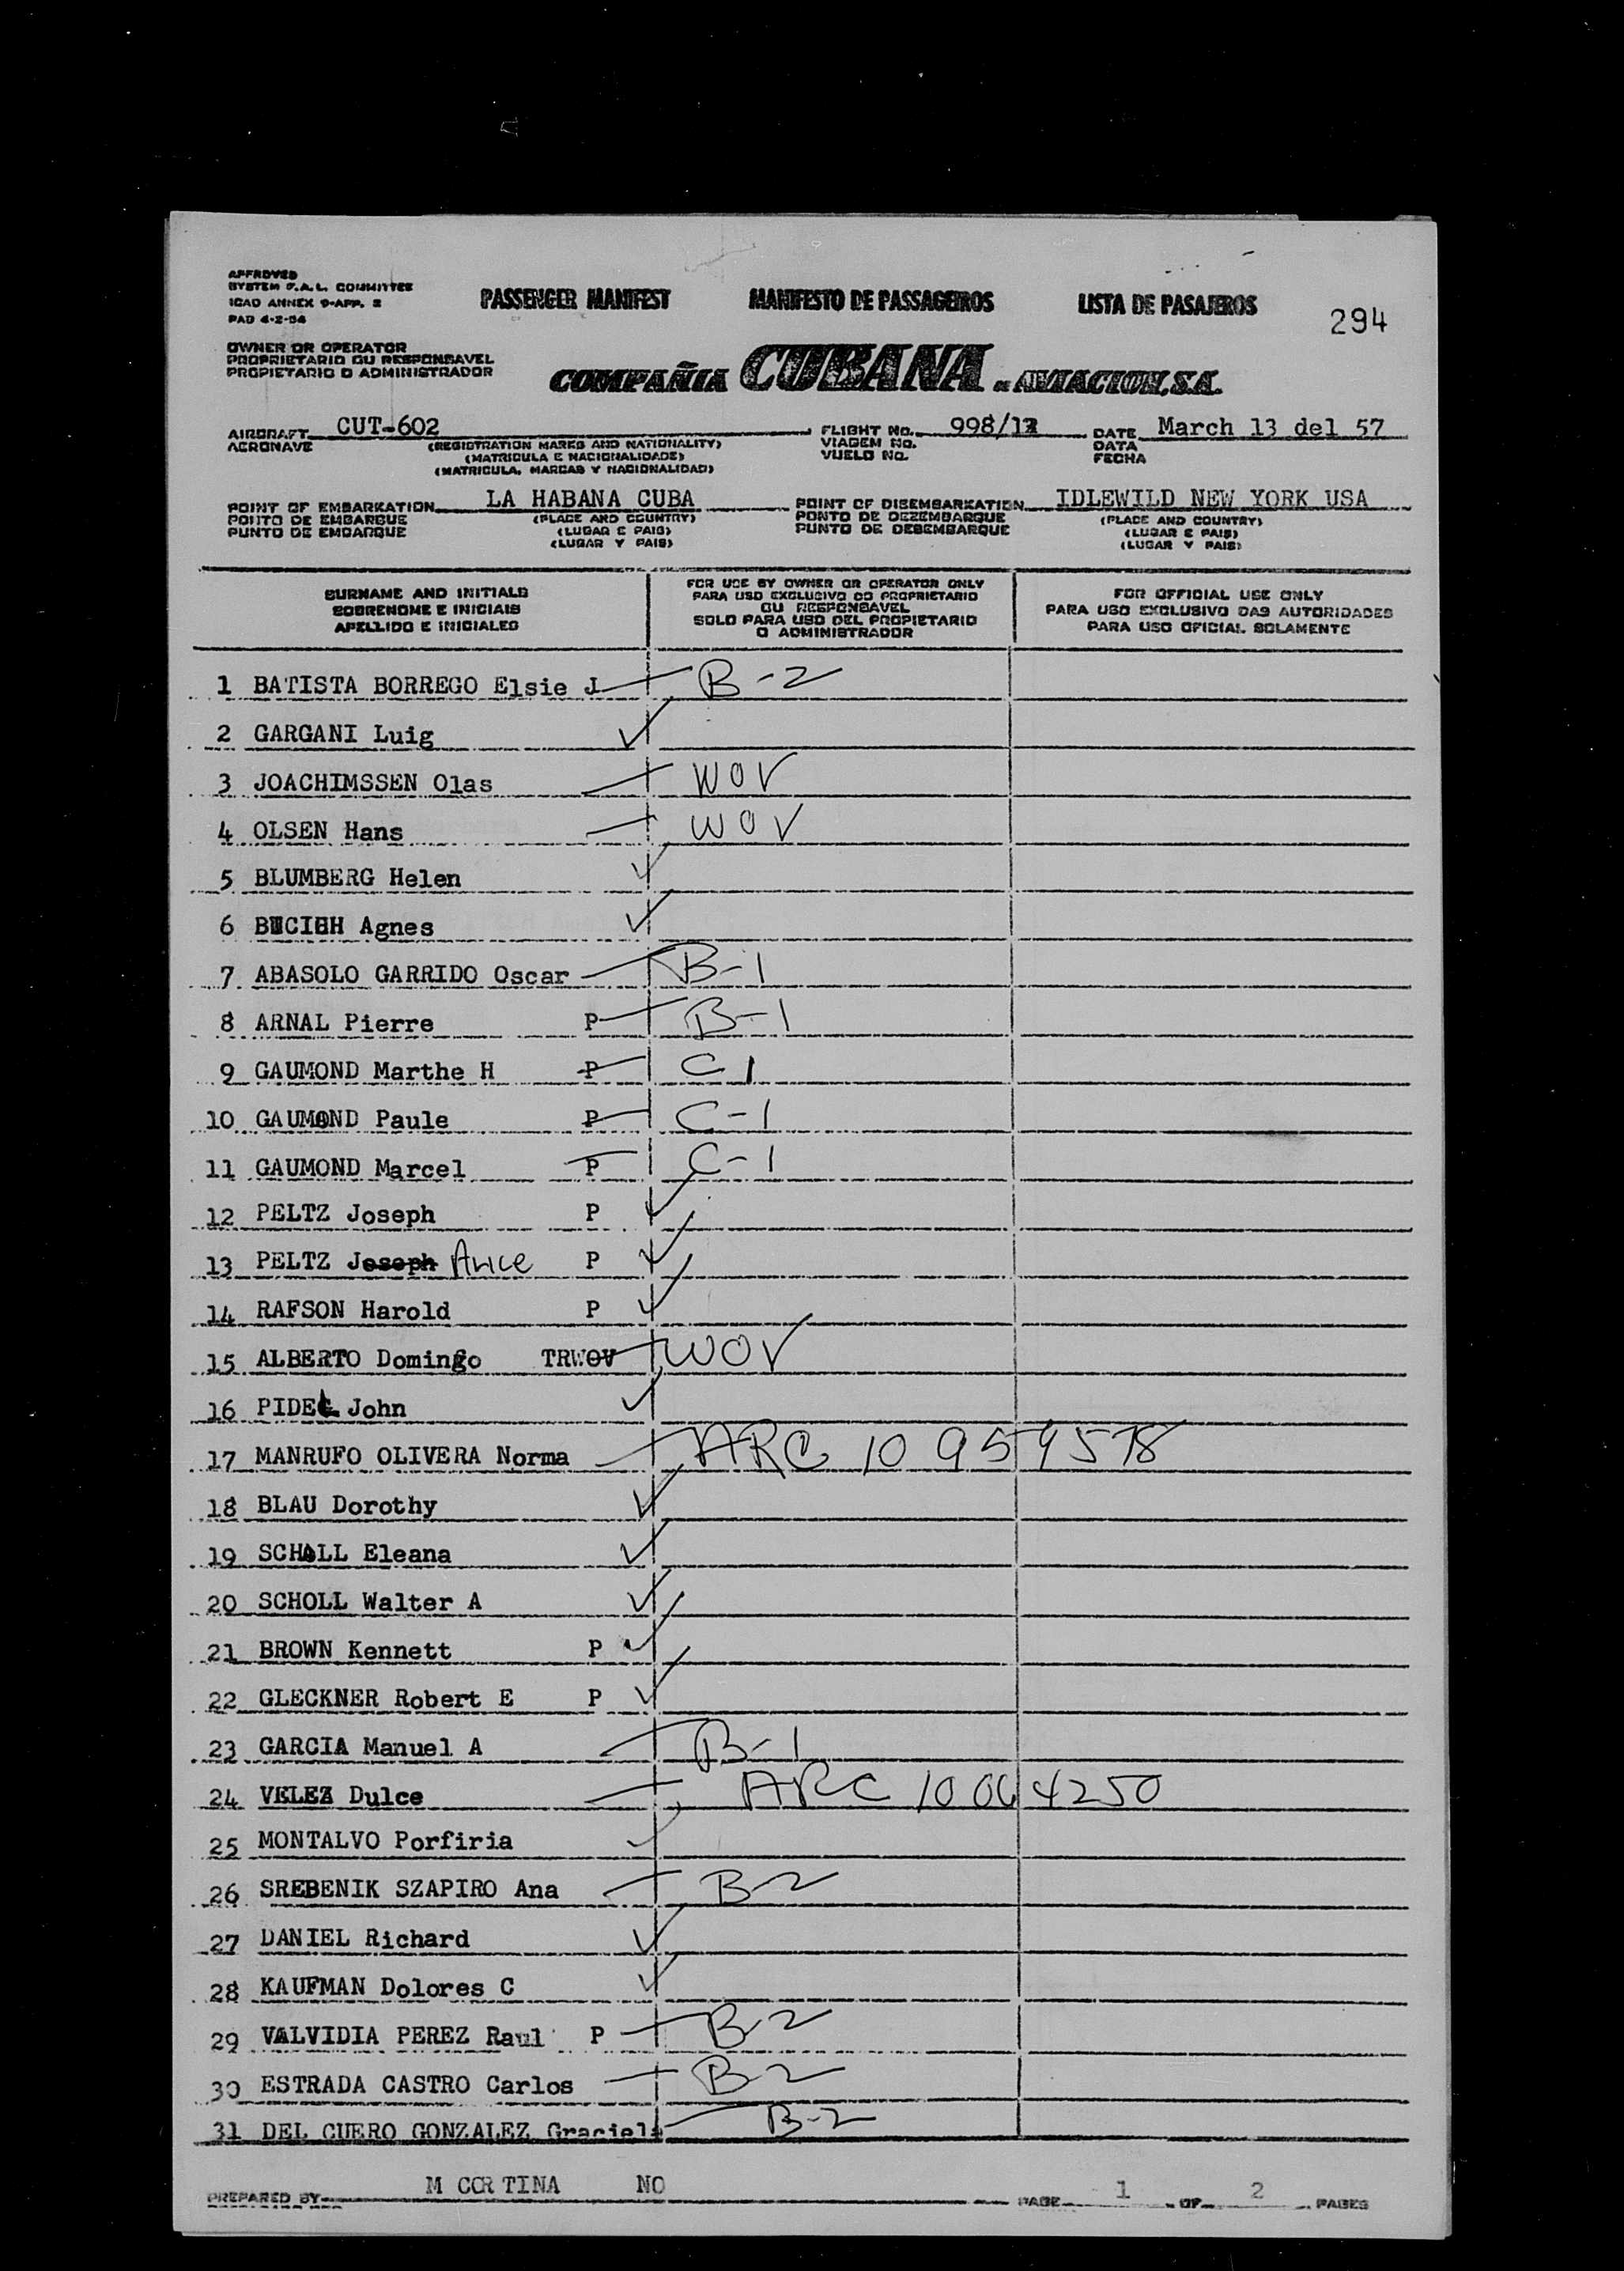 APPROVED
SYSTEM F.A.L. COMMITTEE
ICAO ANNEX 9-APP. 2
PAD 4-2-54
PASSENGER MANIFEST MANIFESTO DE PASSAGEIROS LISTA DE PASAJEROS
294
OWNER OR OPERATOR
PROPRIETARIO OU RESPONSAVEL
PROPIETARIO O ADMINISTRADOR
COMPAÑIA CUBANA DE AVIACION, S.A.
AIRCRAFT CUT-602 FLIGHT NO. 998/13 DATE March 13 del 57
AERONAVE (REGISTRATION MARKS AND NATIONALITY) VIAGEM NO. DATA
(MATRICULA E NACIONALIDADE) VUELO NO. FECHA
(MATRICULA, MARCAS Y NACIONALIDAD)
POINT OF EMBARKATION LA HABANA CUBA POINT OF DISEMBARKATION IDLEWILD NEW YORK USA
PONTO DE EMBARQUE (PLACE AND COUNTRY) PONTO DE DEZEMBARQUE (PLACE AND COUNTRY)
PUNTO DE EMBARQUE (LUGAR E PAIS) PUNTO DE DESEMBARQUE (LUGAR E PAIS)
(LUGAR Y PAIS) (LUGAR Y PAIS)
SURNAME AND INITIALS
SOBRENOME E INICIAIS
APELLIDO E INICIALES
FOR USE BY OWNER OR OPERATOR ONLY
PARA USO EXCLUSIVO DO PROPRIETARIO
OU RESPONSAVEL
SOLO PARA USO DEL PROPIETARIO
O ADMINISTRADOR
FOR OFFICIAL USE ONLY
PARA USO EXCLUSIVO DAS AUTORIDADES
PARA USO OFICIAL SOLAMENTE
1 BATISTA BORREGO Elsie J B-2
2 GARGANI Luig
3 JOACHIMSSEN Olas WOV
4 OLSEN Hans WOV
5 BLUMBERG Helen
6 Agnes
7 ABASOLO GARRIDO Oscar B-1
8 ARNAL Pierre P B-1
9 GAUMOND Marthe H P C 1
10 GAUMOND Paule P C-1
11 GAUMOND Marcel P C-1
12 PELTZ Joseph P
13 PELTZ Joseph Alice P
14 RAFSON Harold P
15 ALBERTO Domingo TRWOV WOV
16 PIDEL John
17 MANRUFO OLIVERA Norma ARC 10 959578
18 BLAU Dorothy
19 SCHOLL Eleana
20 SCHOLL Walter A
21 BROWN Kennett P
22 GLECKNER Robert E P
23 GARCIA Manuel A B-1
24 VELEZ Dulce ARC 10 064250
25 MONTALVO Porfiria
26 SREBENIK SZAPIRO Ana B-2
27 DANIEL Richard
28 KAUFMAN Dolores C
29 VALVIDIA PEREZ Raul P B-2
30 ESTRADA CASTRO Carlos B-2
31 DEL CUERO GONZALEZ Graciela B-2
PREPARED BY M CORTINA NO PAGE 1 OF 2 PAGES